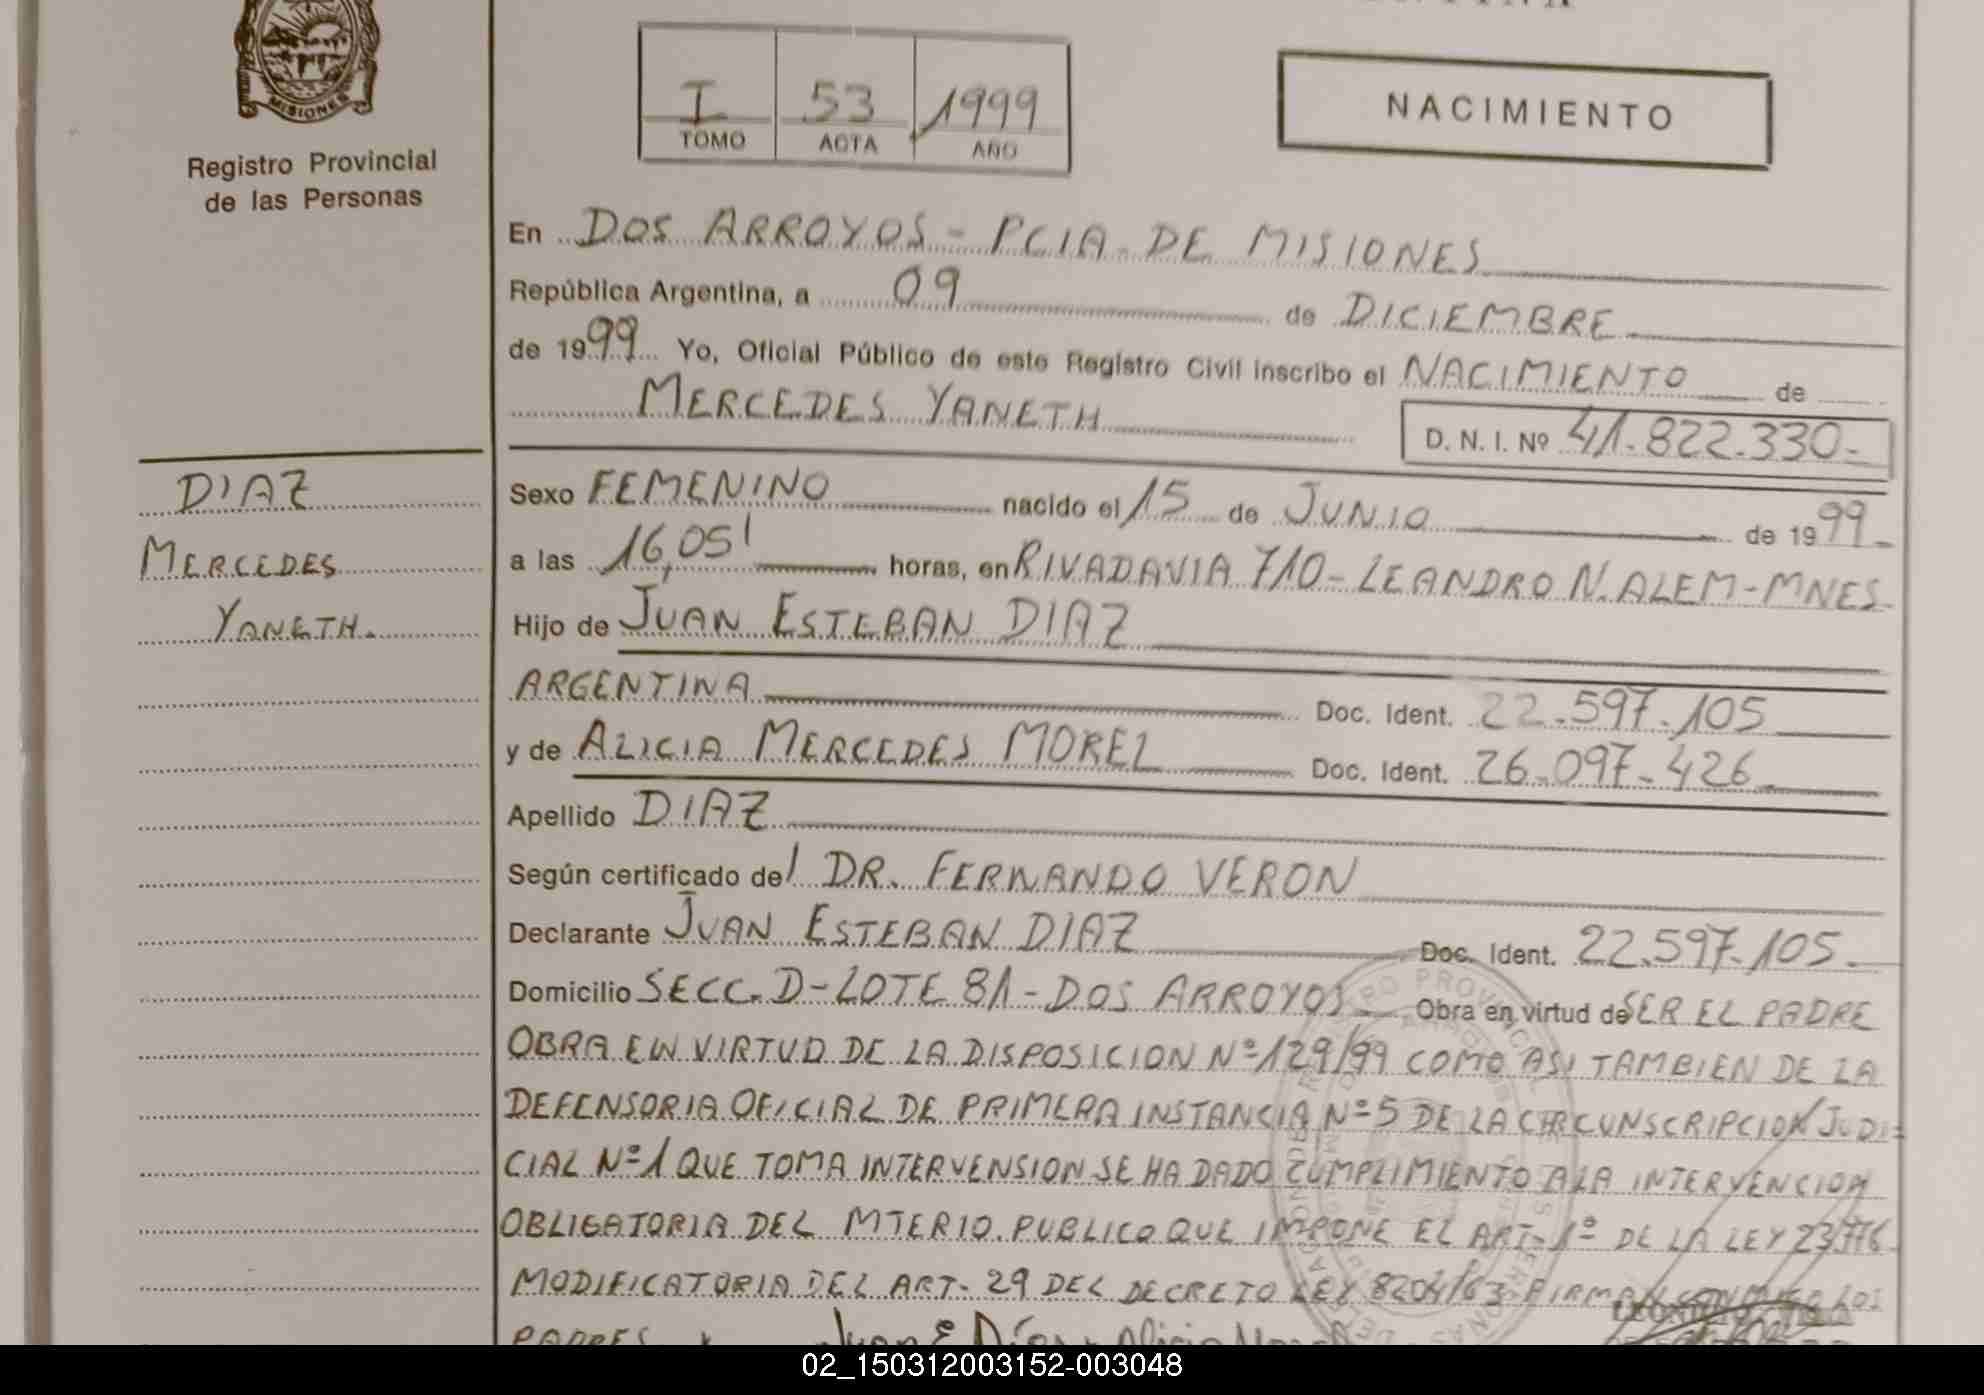 MISIONES
Registro Provincial
de las Personas
I 53 1999
TOMO ACTA AÑO
NACIMIENTO
En DOS ARROYOS - PCIA. DE MISIONES
República Argentina, a 09 de DICIEMBRE
de 1999 Yo, Oficial Público de este Registro Civil inscribo el NACIMIENTO de
MERCEDES YANETH
D. N. I. Nº 41.822.330-
DIAZ
MERCEDES
YANETH.
Sexo FEMENINO nacido el 15 de JUNIO de 1999
a las 16,05' horas, en RIVADAVIA 710 - LEANDRO N. ALEM - MNES.
Hijo de JUAN ESTEBAN DIAZ
ARGENTINA Doc. Ident. 22.597.105
y de ALICIA MERCEDES MOREL Doc. Ident. 26.097.426
Apellido DIAZ
Según certificado del DR. FERNANDO VERON
Declarante JUAN ESTEBAN DIAZ Doc. Ident. 22.597.105.
Domicilio SECC. D - LOTE 81 - DOS ARROYOS Obra en virtud de SER EL PADRE
OBRA EN VIRTUD DE LA DISPOSICION Nº 129/99 COMO ASI TAMBIEN DE LA
DEFENSORIA OFICIAL DE PRIMERA INSTANCIA Nº 5 DE LA CIRCUNSCRIPCION JUDI-
CIAL Nº 1 QUE TOMA INTERVENSION SE HA DADO CUMPLIMIENTO A LA INTERVENCION
OBLIGATORIA DEL MTERIO. PUBLICO QUE IMPONE EL ART. 1º DE LA LEY 23776
MODIFICATORIA DEL ART. 29 DEL DECRETO LEY 8204/63 FIRMAN LOS
PADRES Juan E Díaz Alicia
02_150312003152-003048